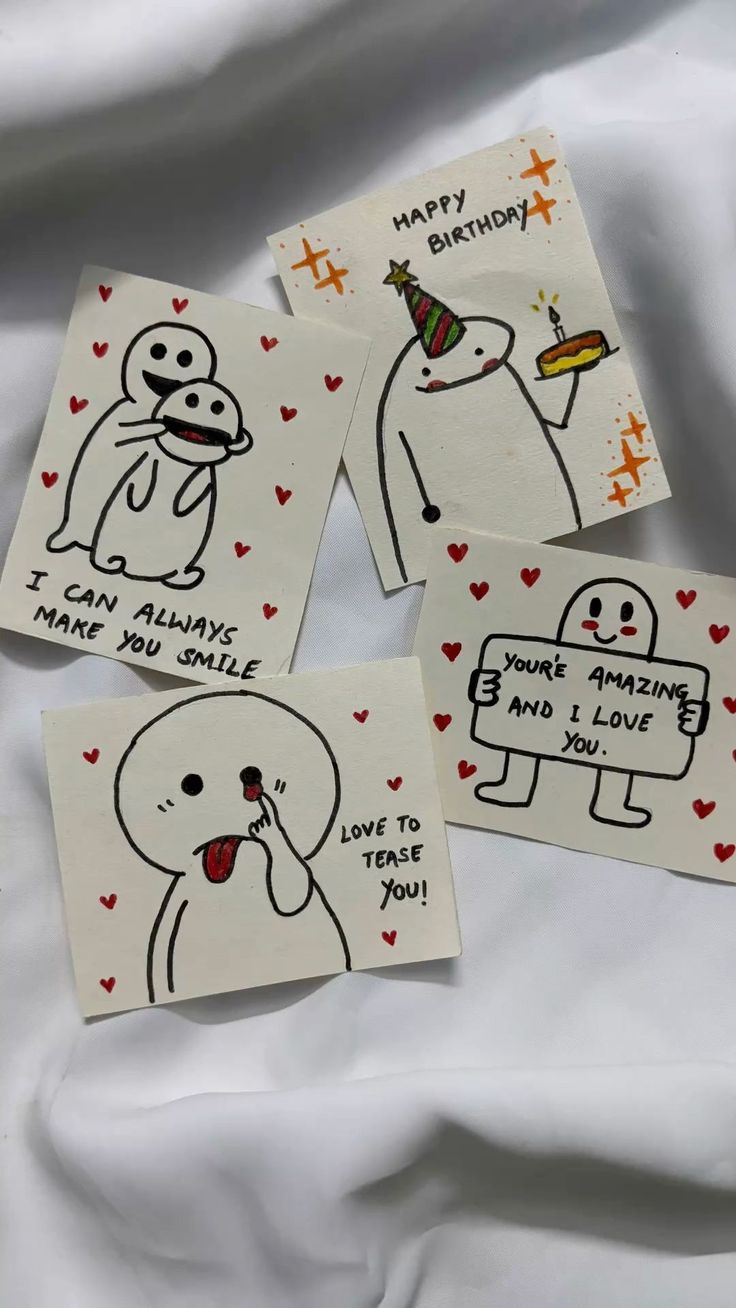 HAPPY
BIRTHDAY
I CAN ALWAYS
MAKE YOU SMILE
YOUR'E AMAZING
AND I LOVE
YOU.
LOVE TO
TEASE
YOU!